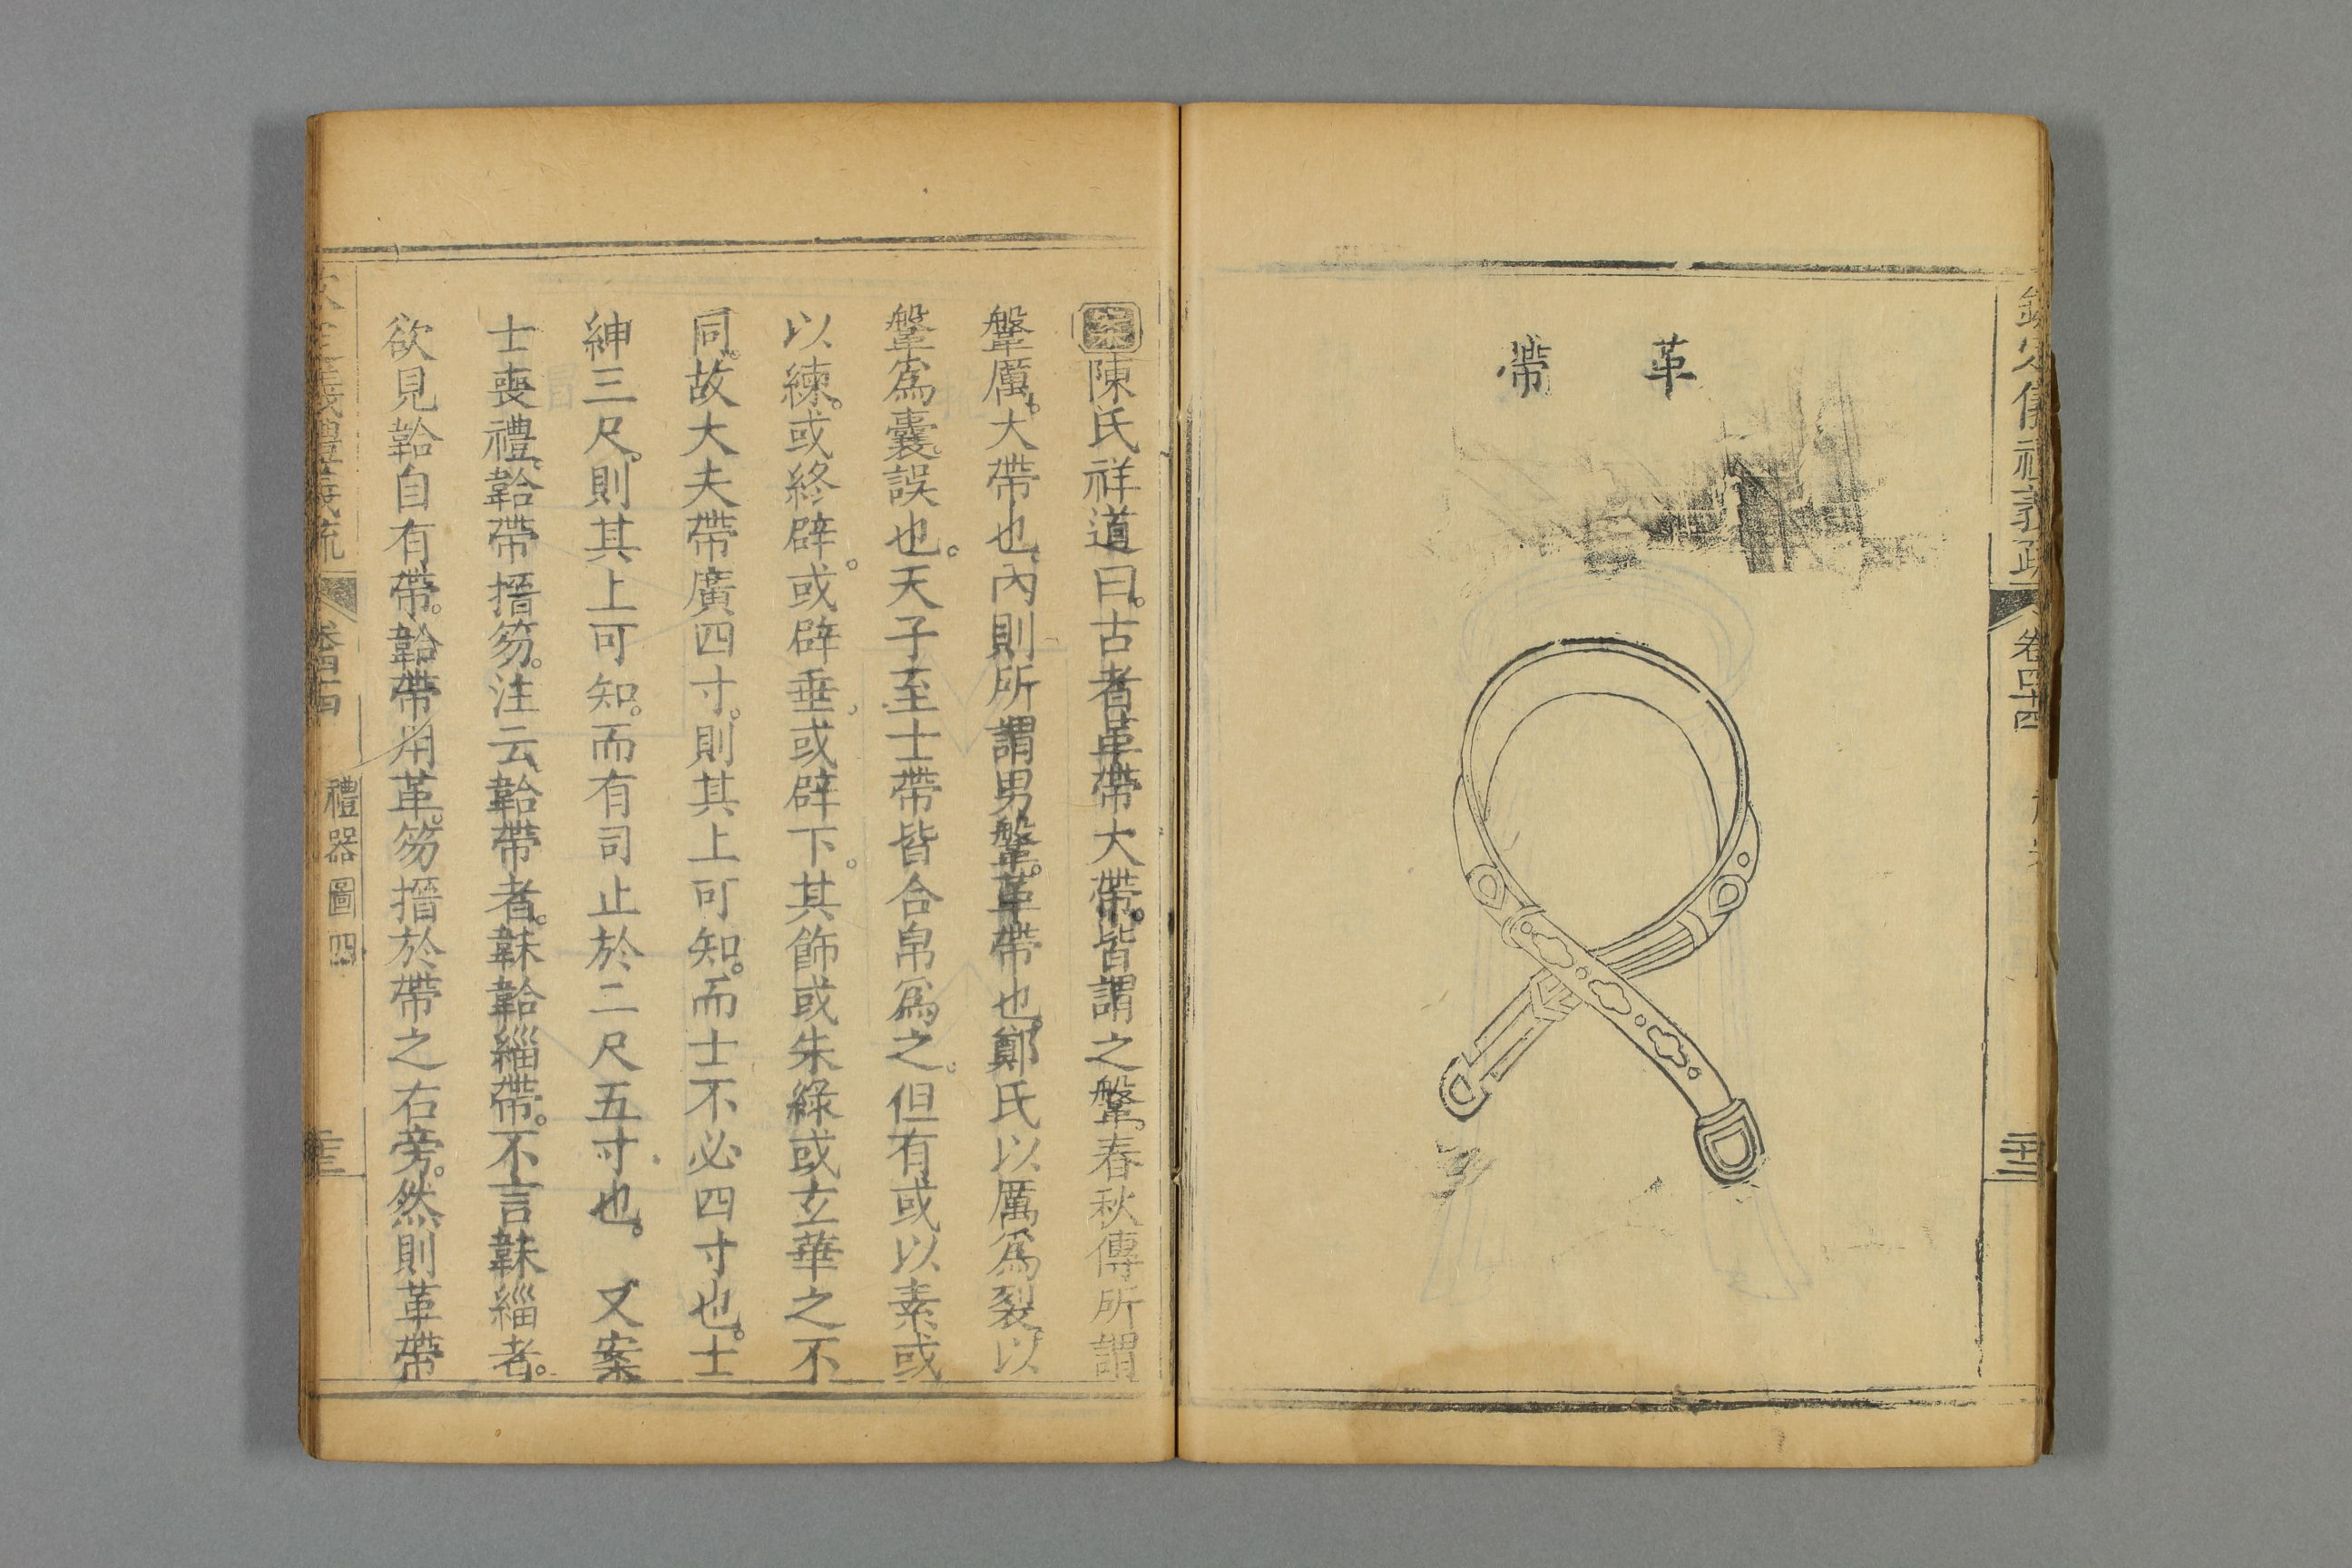 革帶
欽定儀禮義疏
卷四十四
案陳氏祥道曰。古者革帶大帶。皆謂之鞶。春秋傳所謂
鞶厲。大帶也。內則所謂男鞶。革帶也。鄭氏以厲爲裂。以
鞶爲囊。誤也。天子至士帶皆合帛爲之。但有或以素或
以練。或終辟。或辟垂。或辟下。其飾或朱綠或玄華之不
同。故大夫帶廣四寸。則其上可知。而士不必四寸也。士
紳三尺。則其上可知。而有司止於二尺五寸也。 又案
士喪禮。韐帶搢笏。注云。韐帶者。韎韐緇帶。不言韎緇者。
欲見韐自有帶。韐帶用革。笏搢於帶之右旁。然則革帶
禮器圖四